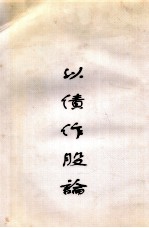 以債作股論